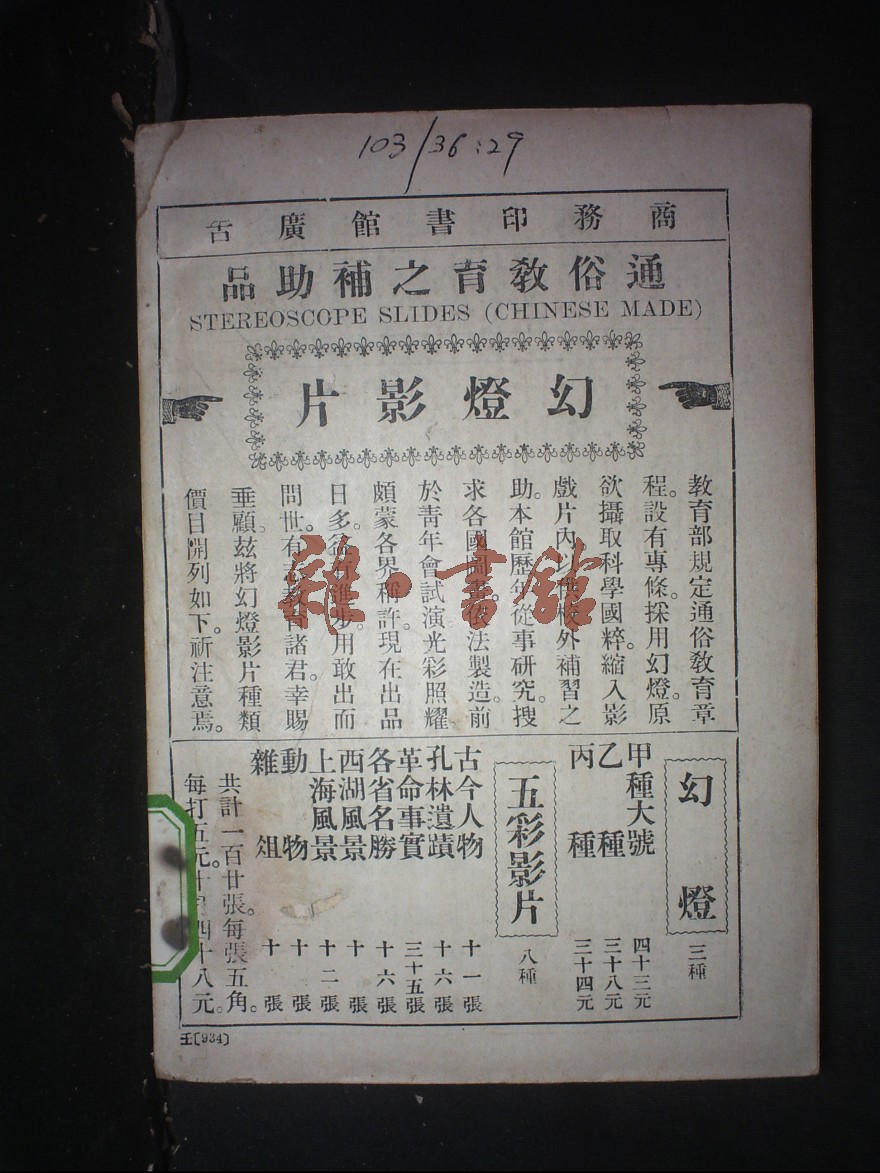 103/36:29
商務印書館廣告
通俗教育之補助品
STEREOSCOPE SLIDES (CHINESE MADE)
幻燈影片
教育部規定通俗教育章
程。設有專條。採用幻燈。原
欲攝取科學國粹。縮入影
戲片內。以供校外補習之
助。本館歷年從事研究。搜
求各國圖畫。依法製造。前
於靑年會試演光彩照耀
頗蒙各界稱許。現在出品
日多。益有進步。用敢出而
問世。有志教育諸君。幸賜
垂顧。茲將幻燈影片種類
價目開列如下。祈注意焉。
幻燈 三種
甲種大號 四十三元
乙種 三十八元
丙種 三十四元
五彩影片 八種
古今人物 十一張
孔林遺蹟 十六張
革命事實 三十五張
各省名勝 十六張
西湖風景 十張
上海風景 十二張
動物 十張
雜俎 十張
共計一百廿張。每張五角。
每打五元。十打四十八元。
王〔934〕
雜·書館